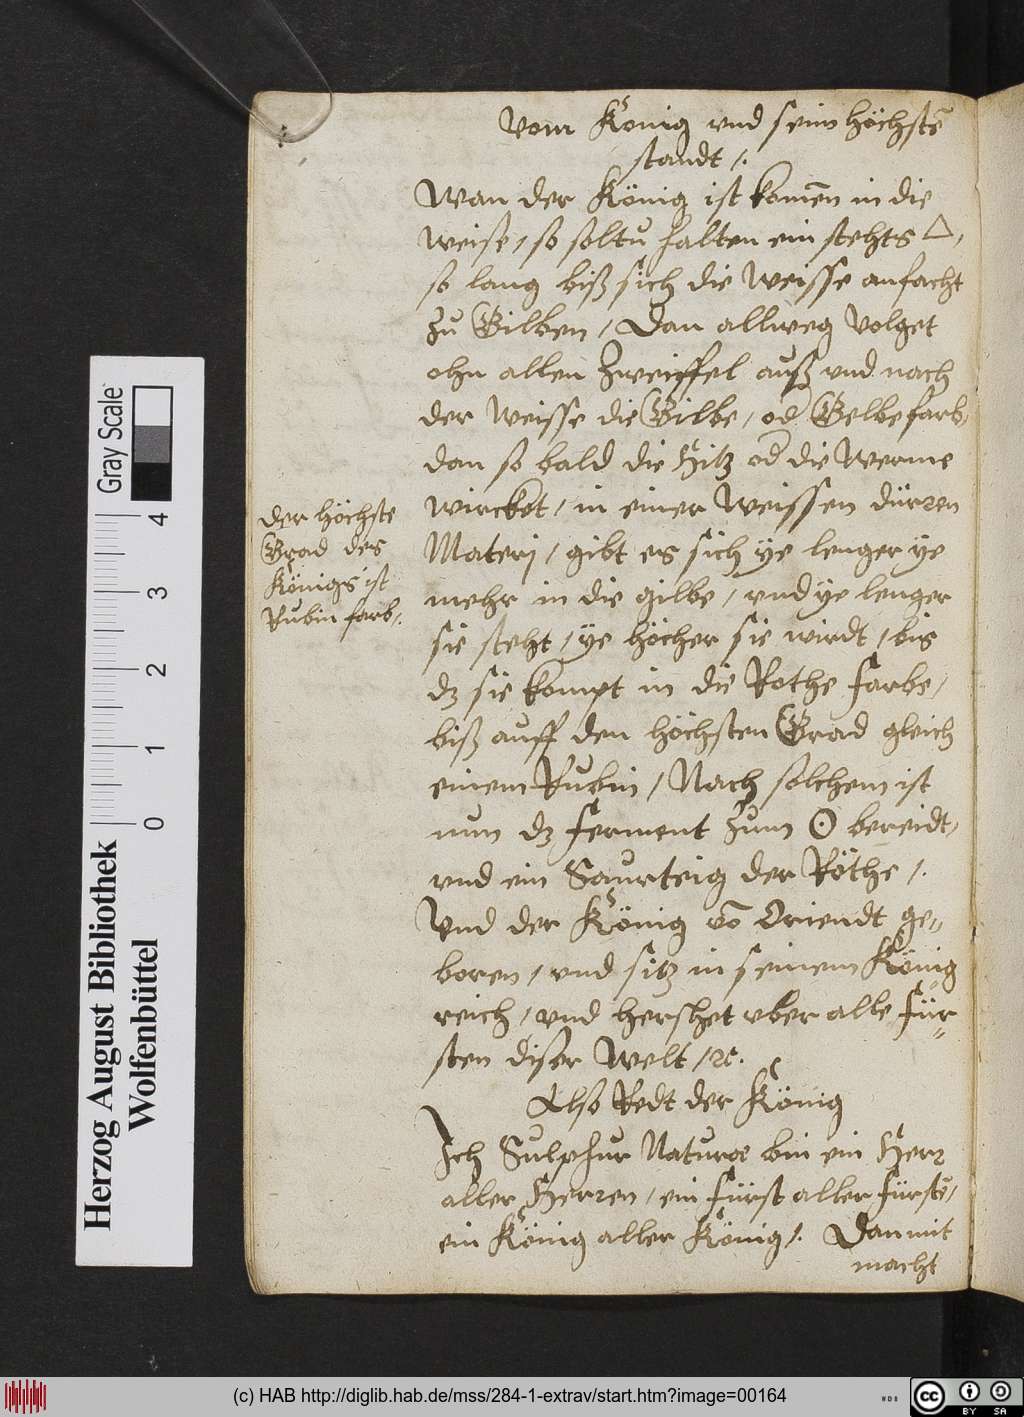 Vom König vnd seim höchstē
standt /.
Wan der König ist kom̄en in die
Weise, so soltu halten ein stehts △,
so lang biß sich die Weisse anfacht
zu Gilben / Dan allweg Volget
ohn allen Zweiffel auß vnd nach
der Weisse die Gilbe, od Gelbe farb,
dan so bald die Hitz od die Werme
wircket, in einer Weissen dürren
Materj, gibt es sich ye lenger ye
mehr in die gilbe, vnd ye lenger
sie steht, ye höcher sie wirdt, bis
dz sie kompt in die Rothe farbe,
biß auff den höchsten Grad gleich
einem Rubin / Nach solchem ist
nun dz ferment zum ☉ bereidt,
vnd ein Saurteig der Röthe /.
Vnd der König vō Oriendt ge„
boren, vnd sitz in seinem König
reich, vnd hershet vber alle für„
sten diser Welt /ꝛc.
Also Redt der König
Ich Sulphur Naturæ bin ein Herr
aller Herren, ein fürst aller fürstē,
ein König aller König /. Dan mit
macht
der höchste
Grad des
Königs ist
Rubin farb,.
Herzog August Bibliothek
Wolfenbüttel
Gray Scale
0 1 2 3 4
(c) HAB http://diglib.hab.de/mss/284-1-extrav/start.htm?image=00164
WDB
cc BY SA